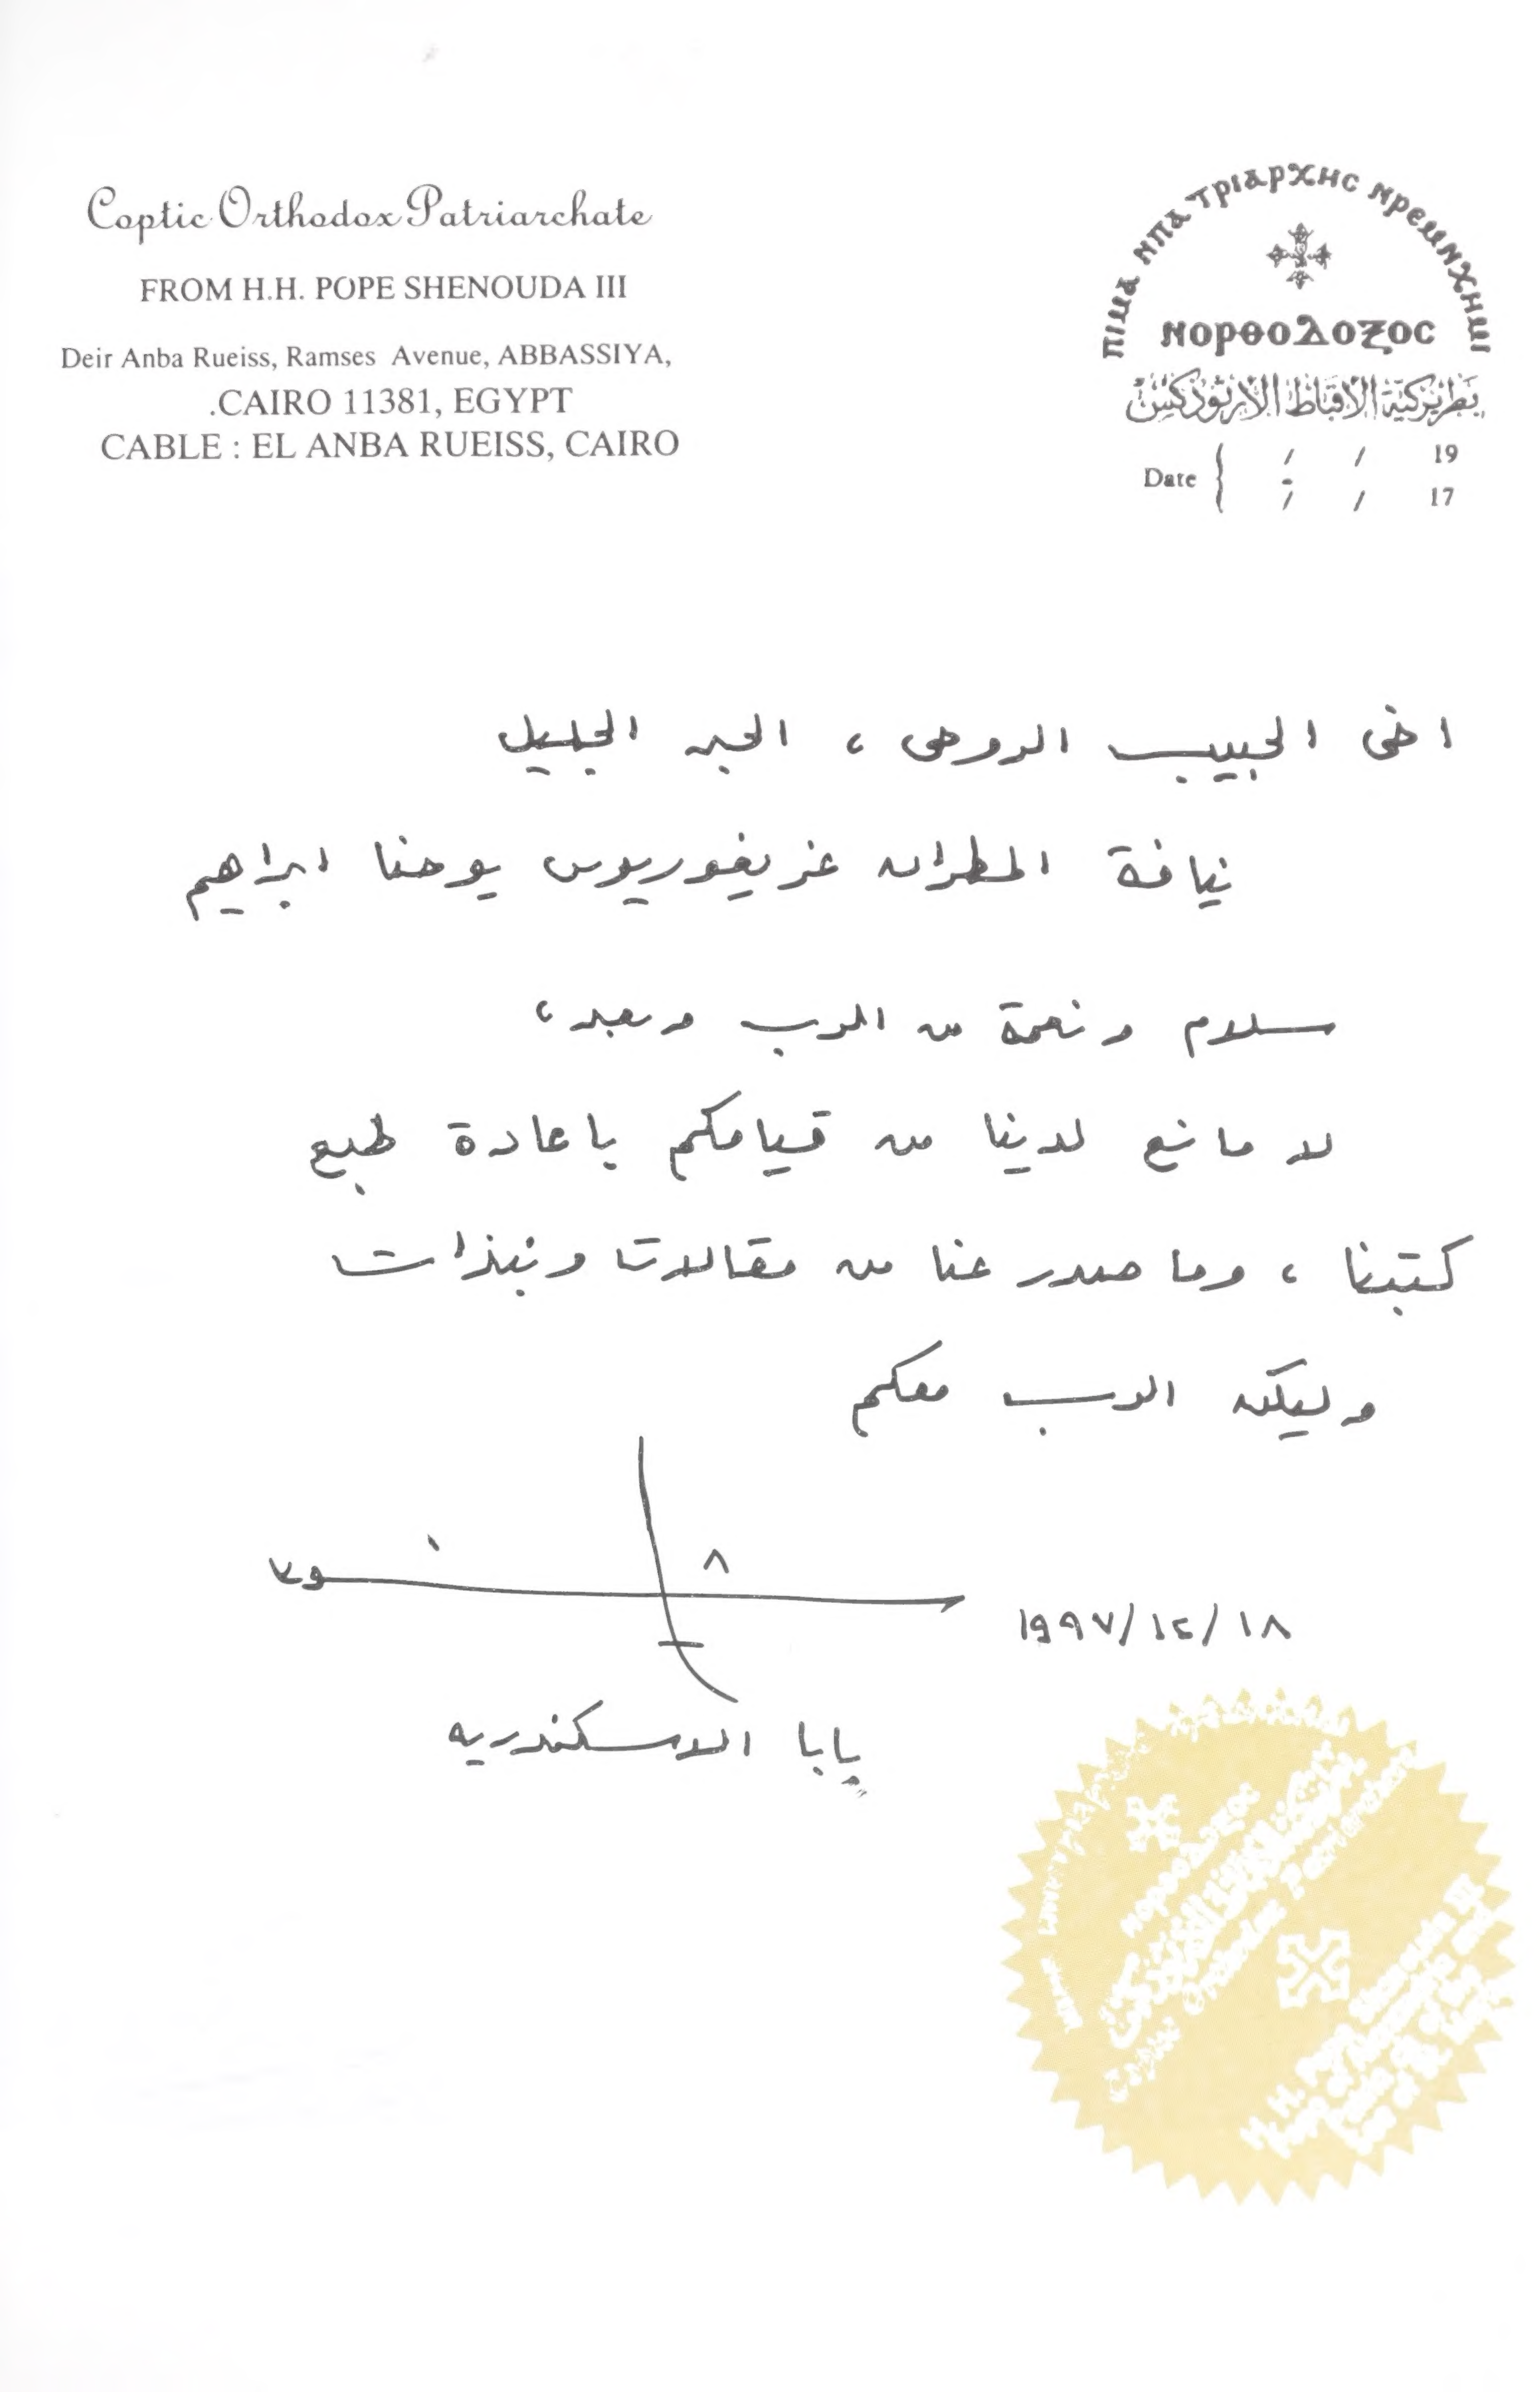 Coptic Orthodox Patriarchate
FROM H.H. POPE SHENOUDA III
Deir Anba Rueiss, Ramses Avenue, ABBASSIYA,
.CAIRO 11381, EGYPT
CABLE : EL ANBA RUEISS, CAIRO
ⲡⲓⲙⲁ ⲙⲡⲁⲧⲣⲓⲁⲣⲭⲏⲥ ⲛⲣⲉⲙⲛⲭⲏⲙⲓ
ⲛⲟⲣⲑⲟⲇⲟⲝⲟⲥ
بطريركية الأقباط الأرثوذكس
Date { / / 19
: / / 17
اخى الحبيب الروحى ، الحبر الجليل
نيافة المطران غريغوريوس يوحنا ابراهيم
سلام ونعمة من الرب وبعد ،
لا مانع لدينا من قيامكم باعادة طبع
كتبنا ، وما صدر عنا من مقالات ونبذات
وليكن الرب معكم
١٩٩٧/١٢/١٨
بابا الاسكندريه
Coptic Orthodox Patriarchate